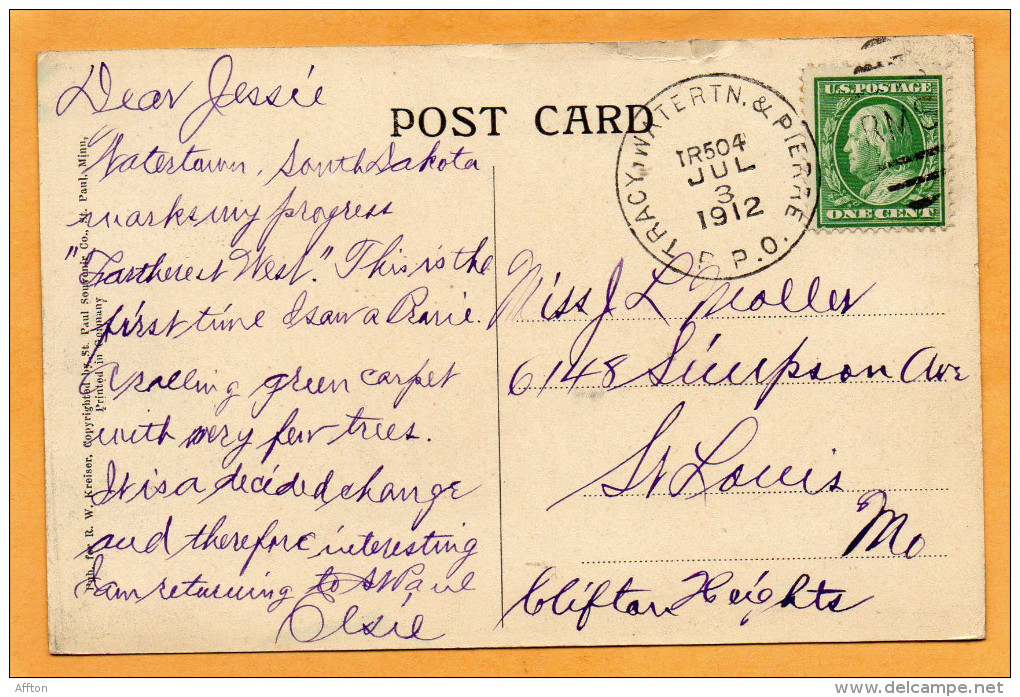 Dear Jessie
POST CARD
Watertown, South Dakota
marks my progress
"Fartherest West." This is the
first time I saw a Prarie.
A rolling green carpet
with very few trees.
It is a decided change
and therefore interesting
I am returning to St Paul
Elsie
Pub. for R. W. Kreiser, Copyrighted by St. Paul Souvenir Co., St. Paul, Minn.
Printed in Germany
TRACY, WATERTN. & PIERRE.
TR504
JUL
3
1912
R.P.O.
U.S. POSTAGE
ONE CENT
RMS
Miss J L Moller
6148 Simpson Ave
St Louis
Mo
Clifton Heights
Affton
www.delcampe.net